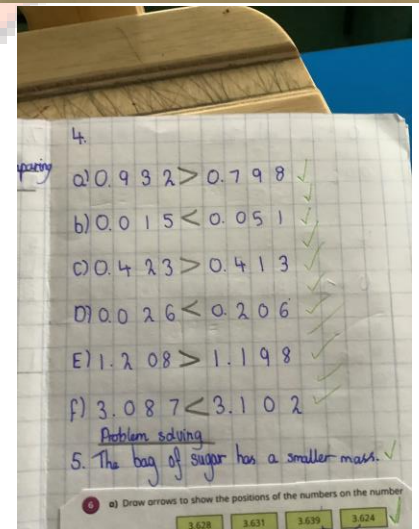 4.
paring
a) 0.932 > 0.798
b) 0.015 < 0.051
c) 0.423 > 0.413
D) 0.026 < 0.206
E) 1.208 > 1.198
f) 3.087 < 3.102
Problem solving
5. The bag of sugar has a smaller mass.
6 a) Draw arrows to show the positions of the numbers on the number
3.628 3.631 3.639 3.624